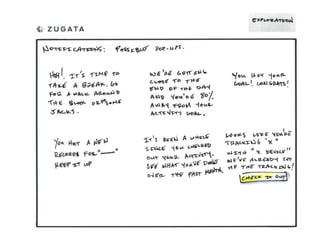 EXPLORATION
ZUGATA
NOTIFICATIONS: POSSIBLE POP-UPS.
HEY! IT'S TIME TO
TAKE A BREAK. GO
FOR A WALK AROUND
THE BLOCK OR DO SOME
JACKS.
WE'RE GETTING
CLOSE TO THE
END OF THE DAY
AND YOU'RE 80%
AWAY FROM YOUR
ACTIVITY GOAL.
YOU MET YOUR
GOAL! CONGRATS!
YOU HIT A NEW
RECORD FOR "___"
KEEP IT UP
IT'S BEEN A WHILE
SINCE YOU CHECKED
OUT YOUR ACTIVITY.
SEE WHAT YOU'VE DONE
OVER THE PAST MONTH.
LOOKS LIKE YOU'RE
TRACKING "X"
WITH "X DEVICE"
WE'VE ALREADY SET
UP THE TRACKING!
CHECK IT OUT!